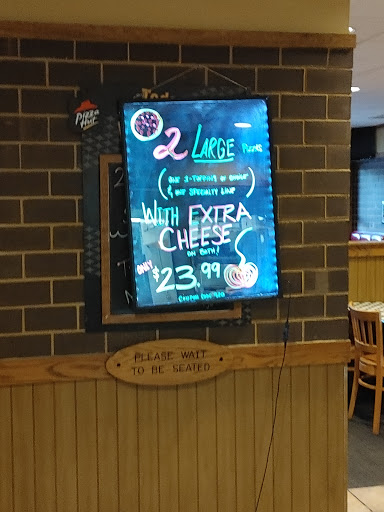 Pizza
Hut
2 LARGE
(ONE 3-TOPPING OF CHOICE
& ONE SPECIALTY LINE)
WITH EXTRA
CHEESE
ON BOTH!
ONLY $23.99
PLEASE WAIT
TO BE SEATED